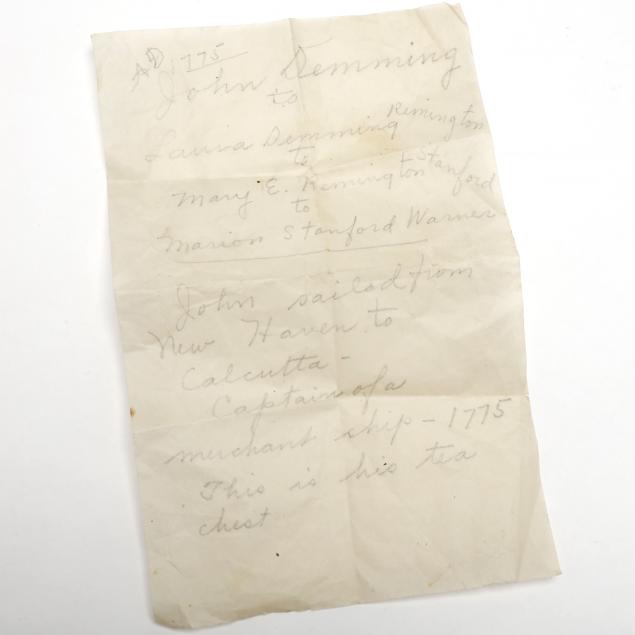 AD 1775
John Demming
to
Laura Demming Remington
to
Mary E. Remington Stanford
to
Marion Stanford Warner
John sailed from
New Haven to
Calcutta -
Captain of a
merchant ship - 1775
This is his tea
chest